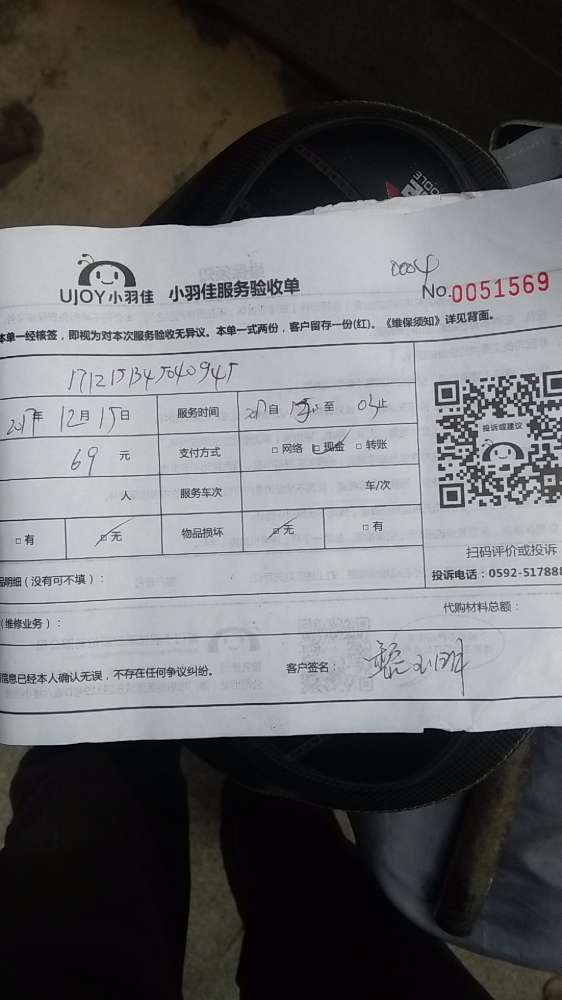 0004
UJOY小羽佳 小羽佳服务验收单 No.0051569
本单一经核签，即视为对本次服务验收无异议。本单一式两份，客户留存一份(红)。《维保须知》详见背面。
1712151345040945
2017年 12月 15日 服务时间 自 至 止
69 元 支付方式 □ 网络 □ 现金 □ 转账
人 服务车次 车/次
□ 有 □ 无 物品损坏 □ 无 □ 有
投诉或建议
扫码评价或投诉
明细（没有可不填）： 投诉电话：0592-517888
（维修业务）： 代购材料总额：
信息已经本人确认无误，不存在任何争议纠纷。 客户签名：